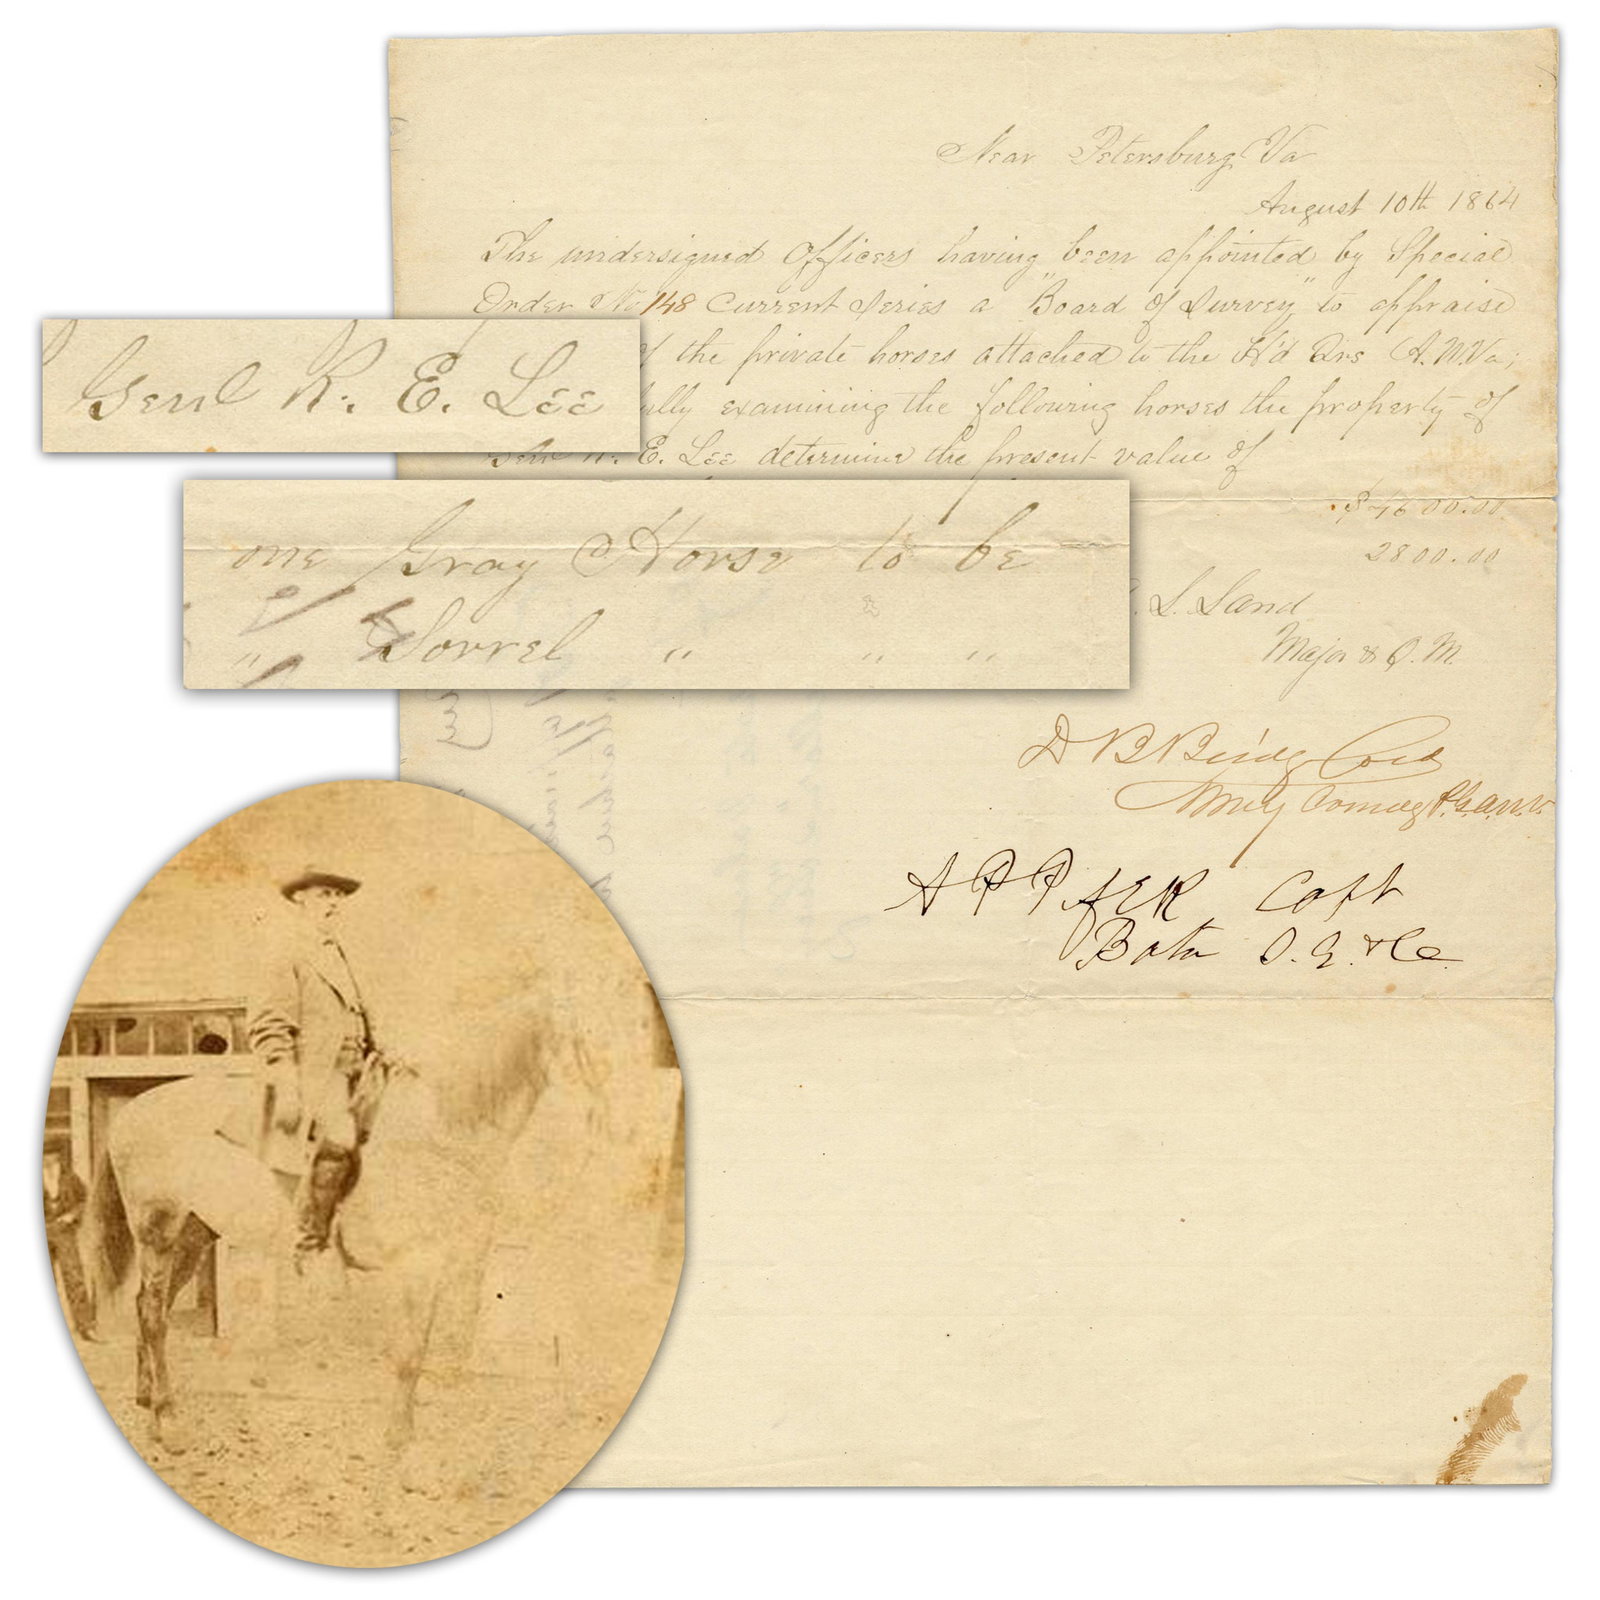 Near Petersburg Va
August 10th 1864
The undersigned Officers having been appointed by Special
Order No 148 Current Series a "Board of Survey" to appraise
of the private horses attached to the H'd Qrs A.N.Va;
fully examining the following horses the property of
Genl R. E. Lee determine the present value of
Genl R. E. Lee
one Gray Horse to be
" Sorrel " " "
$4600.00
2800.00
L. Land
Major & Q. M.
D B
A P P
Capt